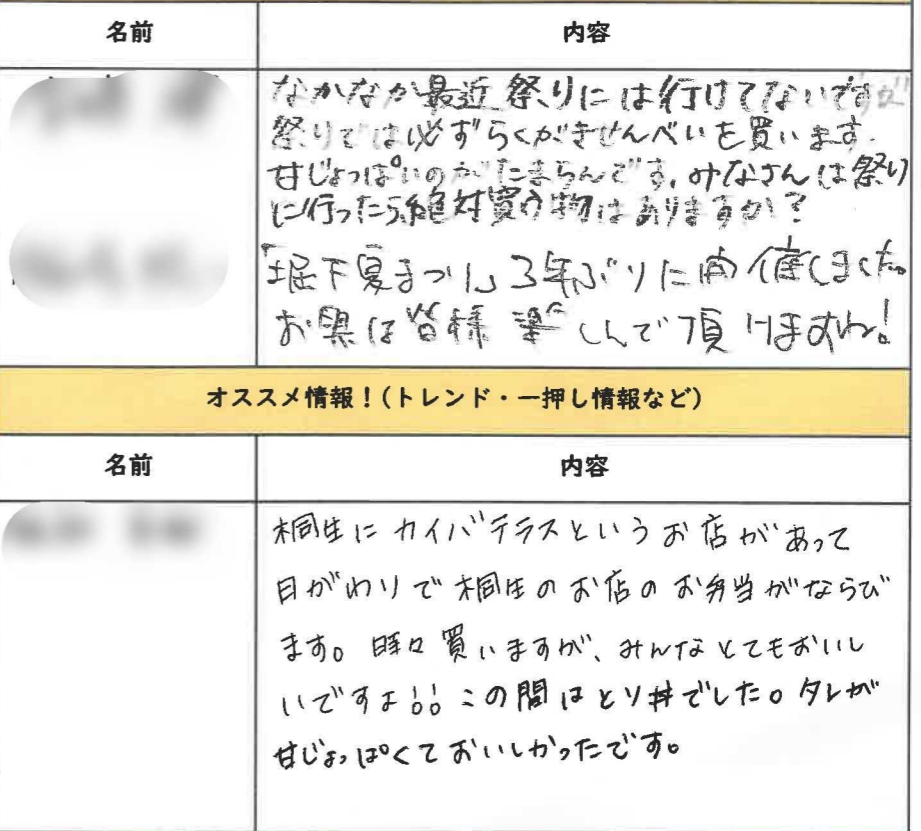 名前 内容
なかなか最近祭りには行けてないですが
祭りでは必ずらくがきせんべいを買います。
甘じょっぱいのがたまらんです。みなさんは祭り
に行ったら絶対買う物はありますか?
「堀下夏まつり」3年ぶりに開催しました。
お興は皆様楽しんで頂けますね!
オススメ情報!(トレンド・一押し情報など)
名前 内容
桐生にカイバテラスというお店があって
日がわりで桐生のお店のお弁当がならび
ます。時々買いますが、みんなとてもおいし
いですよ!! この間はとり丼でした。タレが
甘じょっぱくておいしかったです。